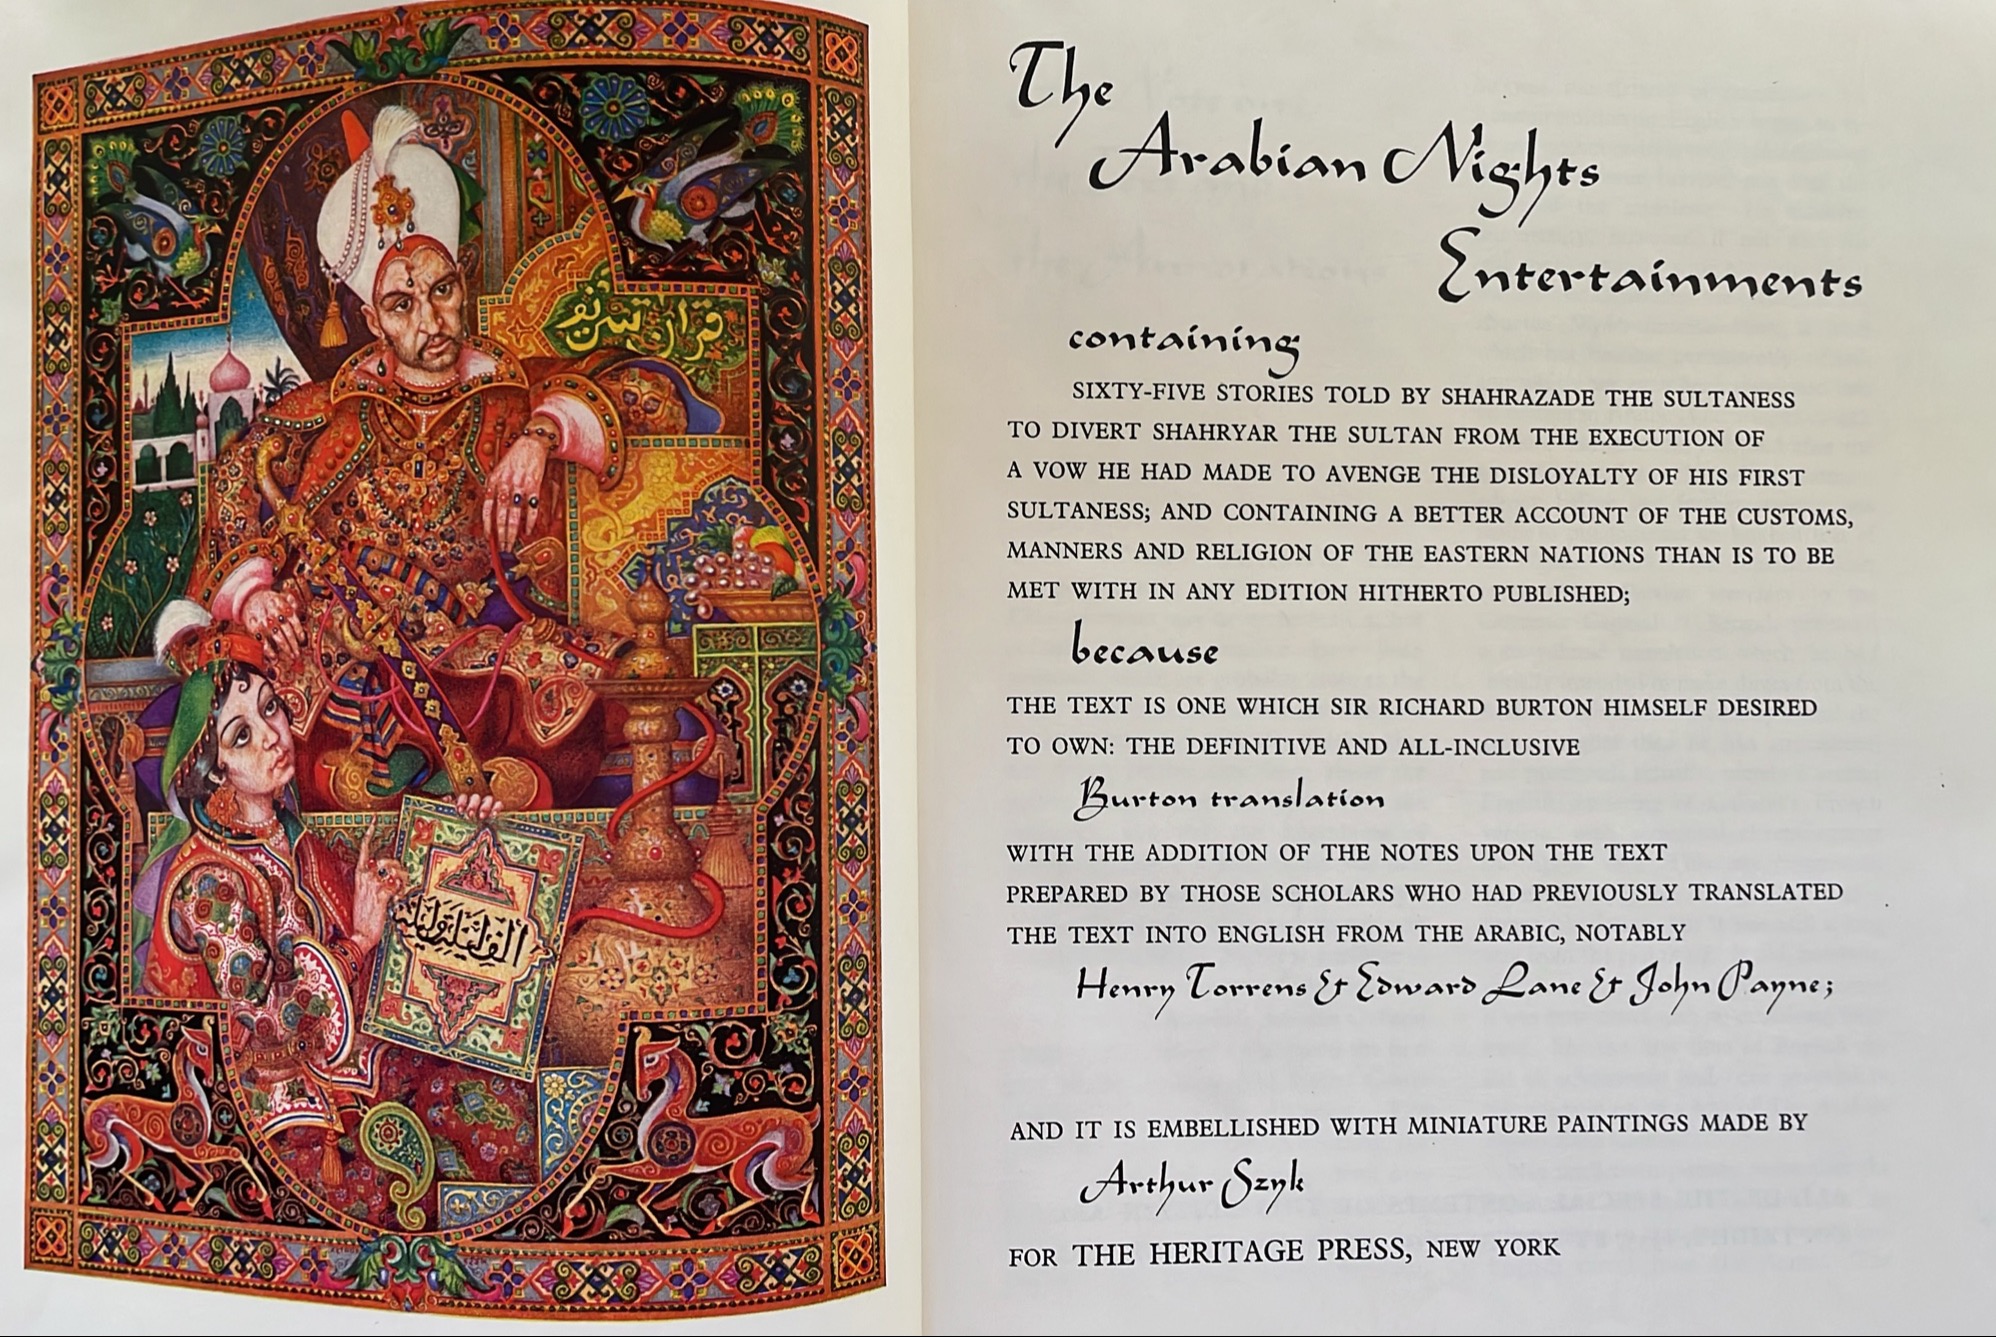 قران شريف
الف ليلة وليلة
The
Arabian Nights
Entertainments
containing
SIXTY-FIVE STORIES TOLD BY SHAHRAZADE THE SULTANESS
TO DIVERT SHAHRYAR THE SULTAN FROM THE EXECUTION OF
A VOW HE HAD MADE TO AVENGE THE DISLOYALTY OF HIS FIRST
SULTANESS; AND CONTAINING A BETTER ACCOUNT OF THE CUSTOMS,
MANNERS AND RELIGION OF THE EASTERN NATIONS THAN IS TO BE
MET WITH IN ANY EDITION HITHERTO PUBLISHED;
because
THE TEXT IS ONE WHICH SIR RICHARD BURTON HIMSELF DESIRED
TO OWN: THE DEFINITIVE AND ALL-INCLUSIVE
Burton translation
WITH THE ADDITION OF THE NOTES UPON THE TEXT
PREPARED BY THOSE SCHOLARS WHO HAD PREVIOUSLY TRANSLATED
THE TEXT INTO ENGLISH FROM THE ARABIC, NOTABLY
Henry Torrens & Edward Lane & John Payne;
AND IT IS EMBELLISHED WITH MINIATURE PAINTINGS MADE BY
Arthur Szyk
FOR THE HERITAGE PRESS, NEW YORK